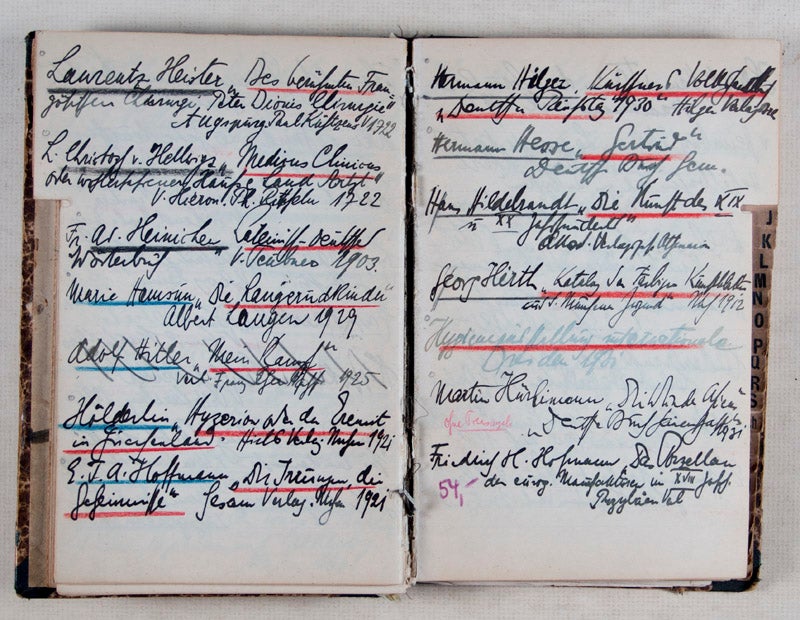 Laurentz Heister „Des berühmten Fran-
zösischen Chirurgi, Peter Dionis Chirurgie"
Augspurg Paul Kühtzens V. 1722
L. Christof v. Hellwig „Medicus Clinicus
oder wohlerfahrener Haus- u. Land Artzt"
V. Hieron. Ph. 1722
Fr. Ad. Heinichen Lateinisch-Deutsches
Wörterbuch V. Teubner 1903.
Marie Hamsun „Die Langerudkinder"
Albert Langen 1929
Adolf Hitler „Mein Kampf"
Verl. Franz Eher Nachf 1925
Hölderlin „Hyperion oder der Eremit
in Griechenland Verlag Mchn 1921
E. T. A. Hoffmann „Die Irrungen, die
Geheimnisse" Gesam Verlag. Mchn 1921
Hermann Hilger. Kürschners
„Deutscher Reichstag 1930" Hilger Verlag
Hermann Hesse „Gertrud"
Deutsche Buch Gem.
Hans Hildebrandt „Die Kunst des XIX
u XX Jahrhundert"
Akad. Verlagsges. Athenaion
Georg Hirth „Katalog der farbigen Kunstblätter
aus d. Münchner Jugend" 1912
Hygieneausstellung internationale
Dresden
Martin Hürlimann „
„Deutsche Buchgemeinschaft 1931
Friedrich H. Hofmann „Das Porzellan
54,- der europ. Manufakturen im XVIII Jahrh.
Propyläen Verl
J
K
L
M
N
O
P
Q
R
S